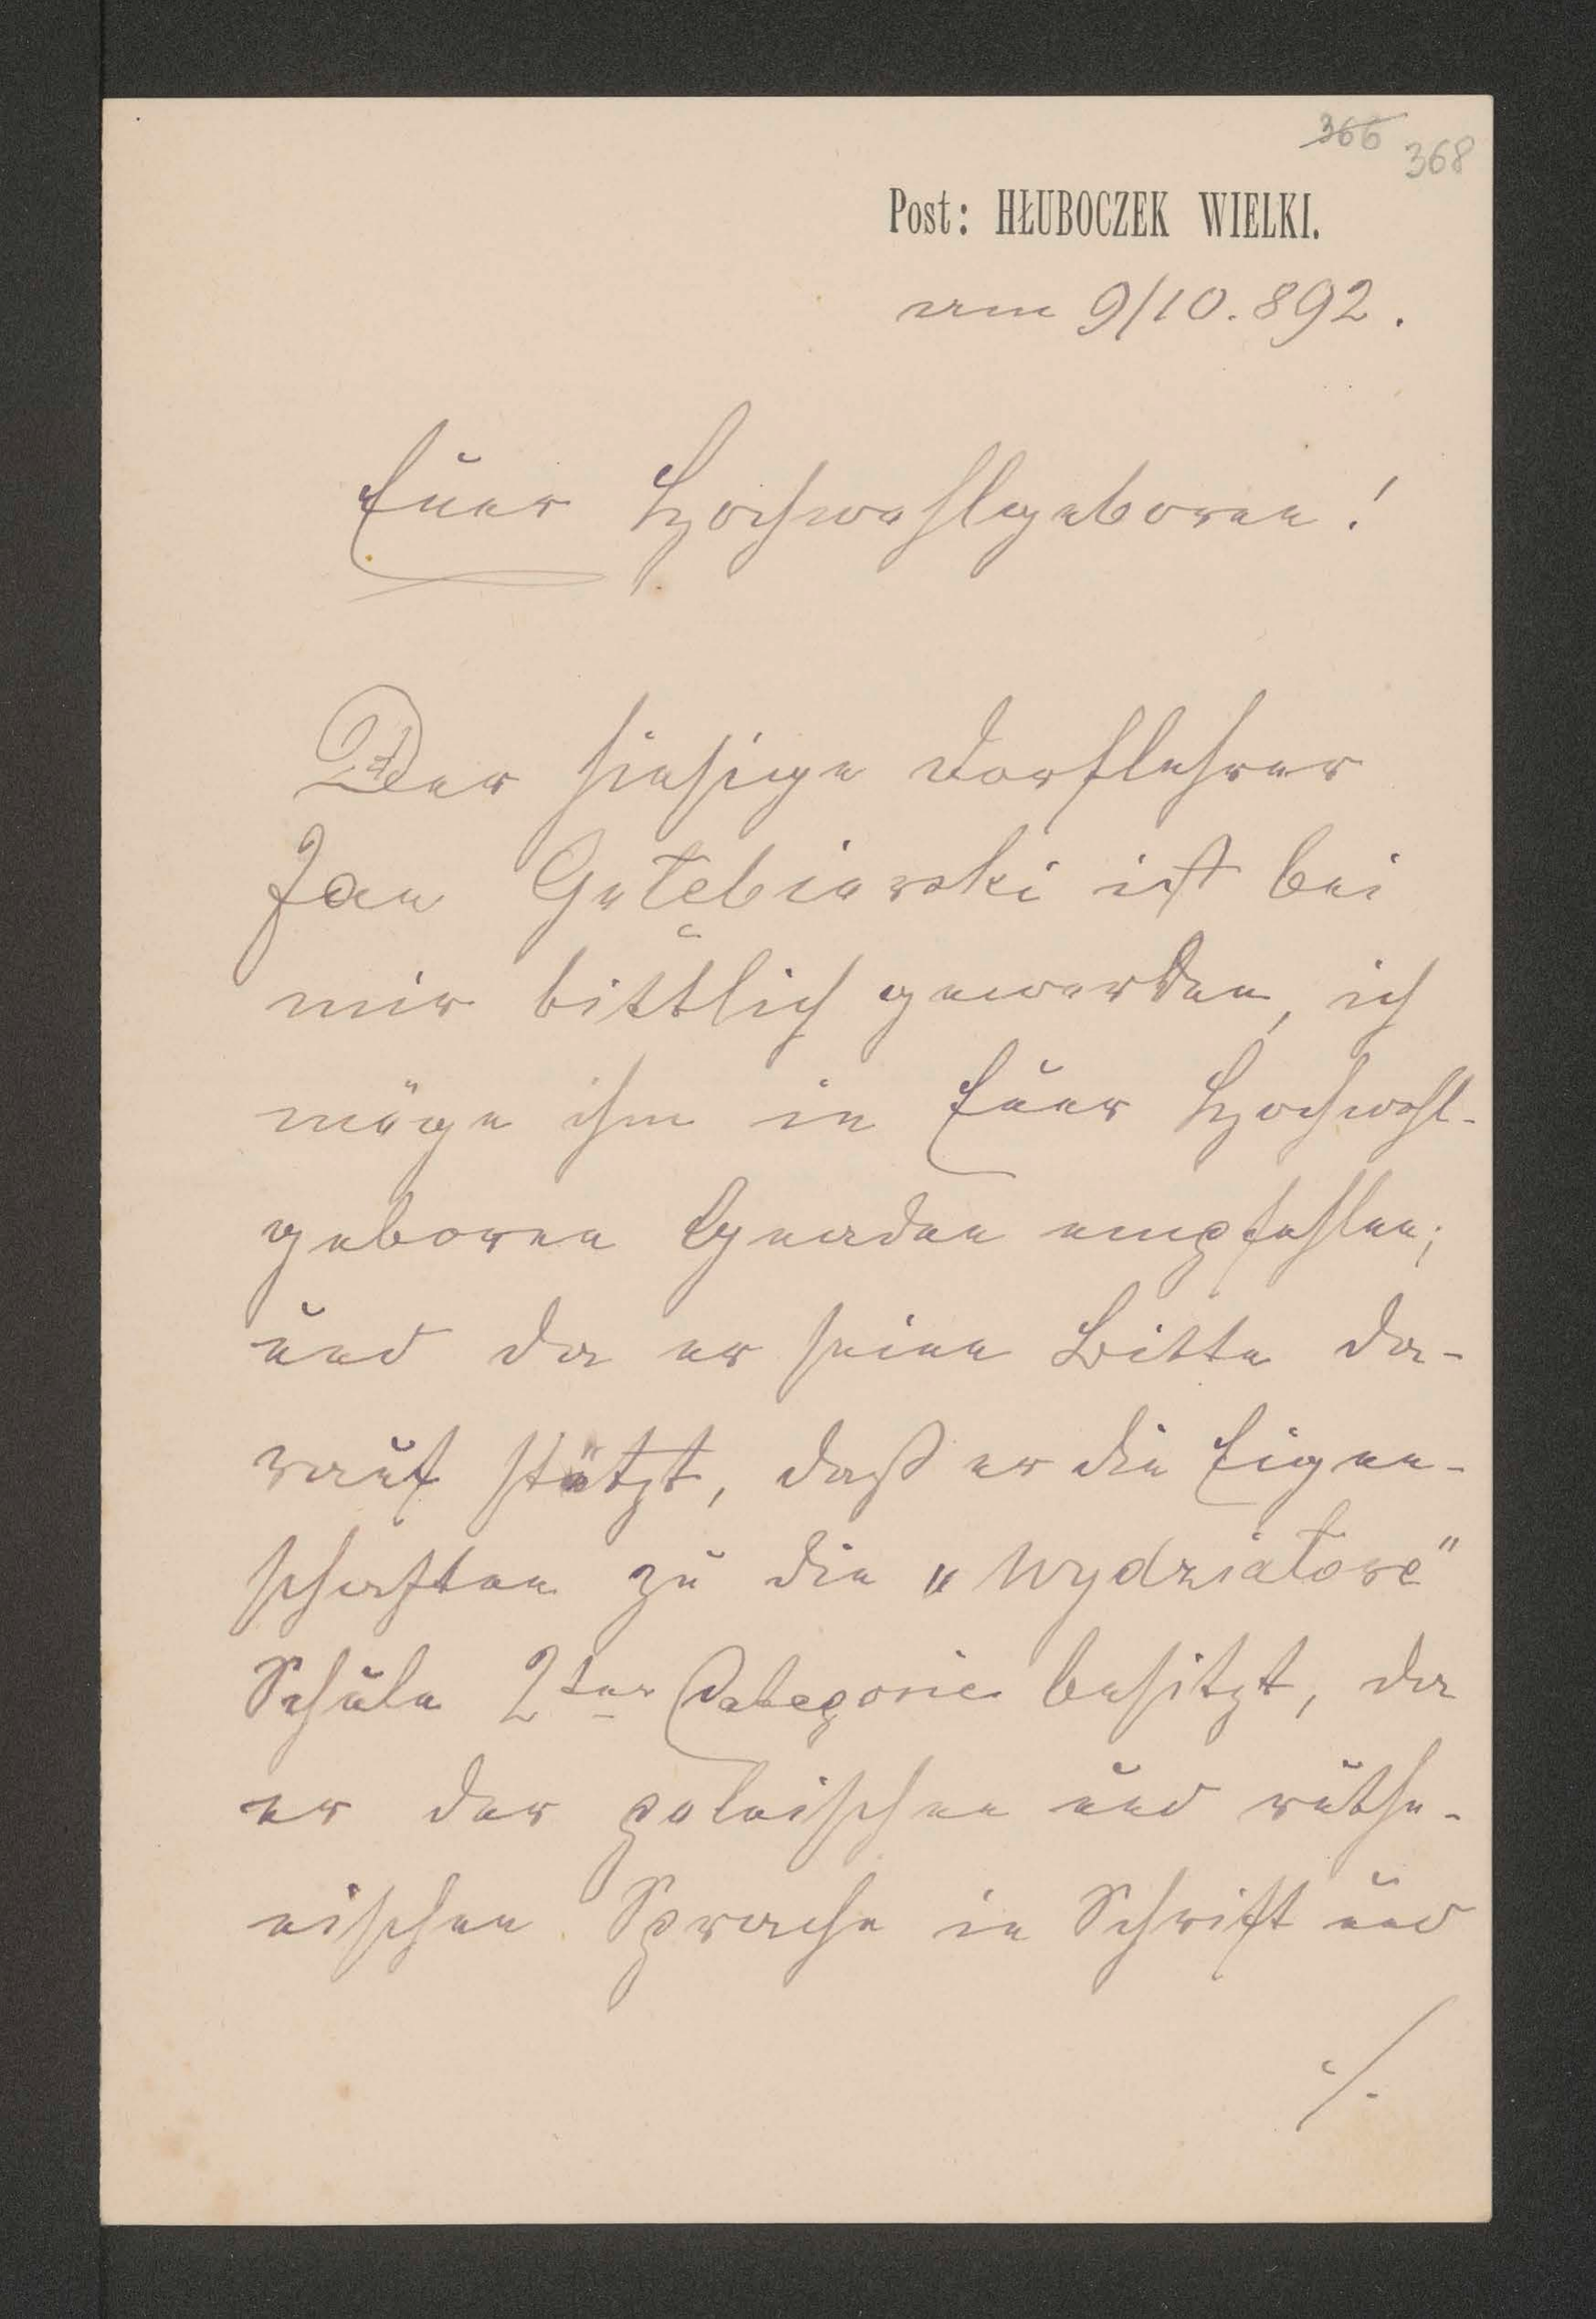 366 368
Post: HŁUBOCZEK WIELKI.
am 9/10. 892.
Euer Hochwohlgeboren!
Der hiesige Dorflehrer
Jan Gołębiowski ist bei
mir bittlich geworden, ich
möge ihn in Euer Hochwohl-
geboren Gnaden empfehlen;
und da er seine Bitte da-
rauf stützt, daß er die Eigen-
schaften zu die „Wydziałowe"
Schule 2ter Categorie besitzt, da
er der polnischen und ruthe-
nischen Sprache in Schrift und
./.